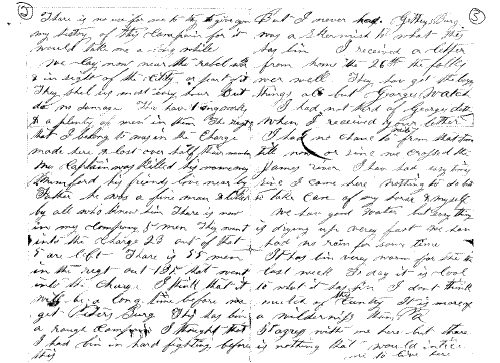 2
There is no use for me to try to give you
my history of this Campaign for it
would take me a long while
We lay now near the rebel
& in sight of the City or part of it
They shel us most every hour But
do no damage The have long works
& a plenty of men in them The regt
that I belong to was in the Charge
made here & lost over half their number
Our Captain was killed his name was
Mumford his friends live near by
Father he was a fine man & liked
by all who knew him There is now
in my company 5 men They went
into the Charge 23 out of that
5 are left There is 55 men
in the regt out 135 that went
into the Charge I think that it
will be a long time before we
get Peters Burg This has bin
a range Campaign I thought that
I had bin in hard fighting before
this
3
But I never had. Gettys Burg
was a Skermish to what they
has bin I received a letter
from home the 26th the folks
wer well They had got the
things all but Georges Watch
I had not herd of Georges deth
When I received your letter
I had no chance to from that time
till now or since we crossed the
James river I have had easy times
since I came here nothing to do but
to take care of my horse & myself
We have good Water but every thing
is drying up very fast we have
had no rain for some time
It has bin very warm for the
last week To day it is cool
to what it has bin I don't think
much of the Country It is more of
a wilderniss than
Stagers with me here but there
is nothing that would intice
me to live here